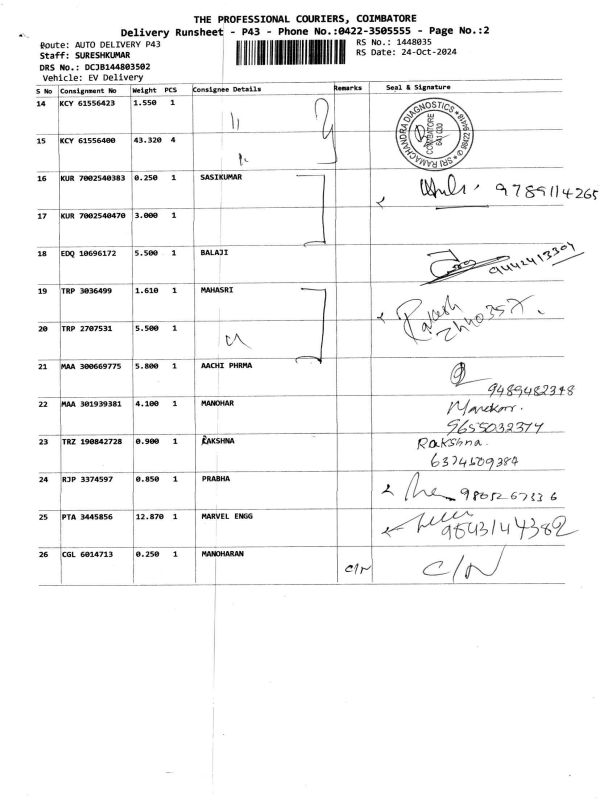 THE PROFESSIONAL COURIERS, COIMBATORE
Delivery Runsheet - P43 - Phone No.:0422-3505555 - Page No.:2
Route: AUTO DELIVERY P43
RS No.: 1448035
Staff: SURESHKUMAR
RS Date: 24-Oct-2024
DRS No.: DCJB144803502
Vehicle: EV Delivery
S No Consignment No Weight PCS Consignee Details Remarks Seal & Signature
14 KCY 61556423 1.550 1
SRI RAMACHANDRA DIAGNOSTICS
COIMBATORE
641 030
15 KCY 61556400 43.320 4
16 KUR 7002540383 0.250 1 SASIKUMAR
9789114265
17 KUR 7002540470 3.000 1
18 EDQ 10696172 5.500 1 BALAJI
9442413304
19 TRP 3036499 1.610 1 MAHASRI
Rakesh
20 TRP 2707531 5.500 1
21 MAA 300669775 5.800 1 AACHI PHRMA
9489482348
22 MAA 301939381 4.100 1 MANOHAR
9655032374
23 TRZ 190842728 0.900 1 RAKSHNA
Rakshna.
6374509384
24 RJP 3374597 0.850 1 PRABHA
9805267336
25 PTA 3445856 12.870 1 MARVEL ENGG
9543144382
26 CGL 6014713 0.250 1 MANOHARAN C/N C/N